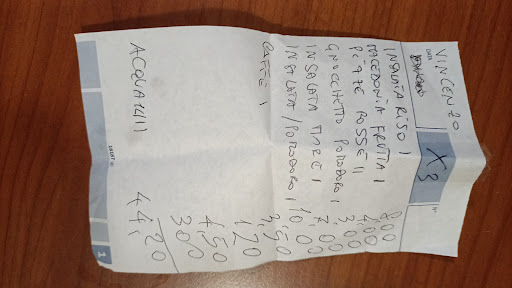 VINCENZO
DATA
X3
N°
INSALATA RISO 1 8,00
MACEDONIA FRUTTA 1 4,00
PIZZE ROSSE II 3,00
GNOCCHETTO POMODORO 1 7,00
INSALATA MARE 1 10,00
INSALATA/POMODORO 1 3,50
CAFFE 1 1,20
4,50
ACQUA 3,00
44,20
1